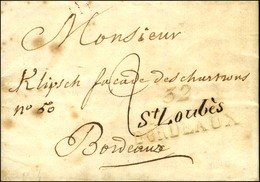 Monsieur
Klipsch facade des chartrons
n° 50
2
32
St Loubès
BORDEAUX
Bordeaux